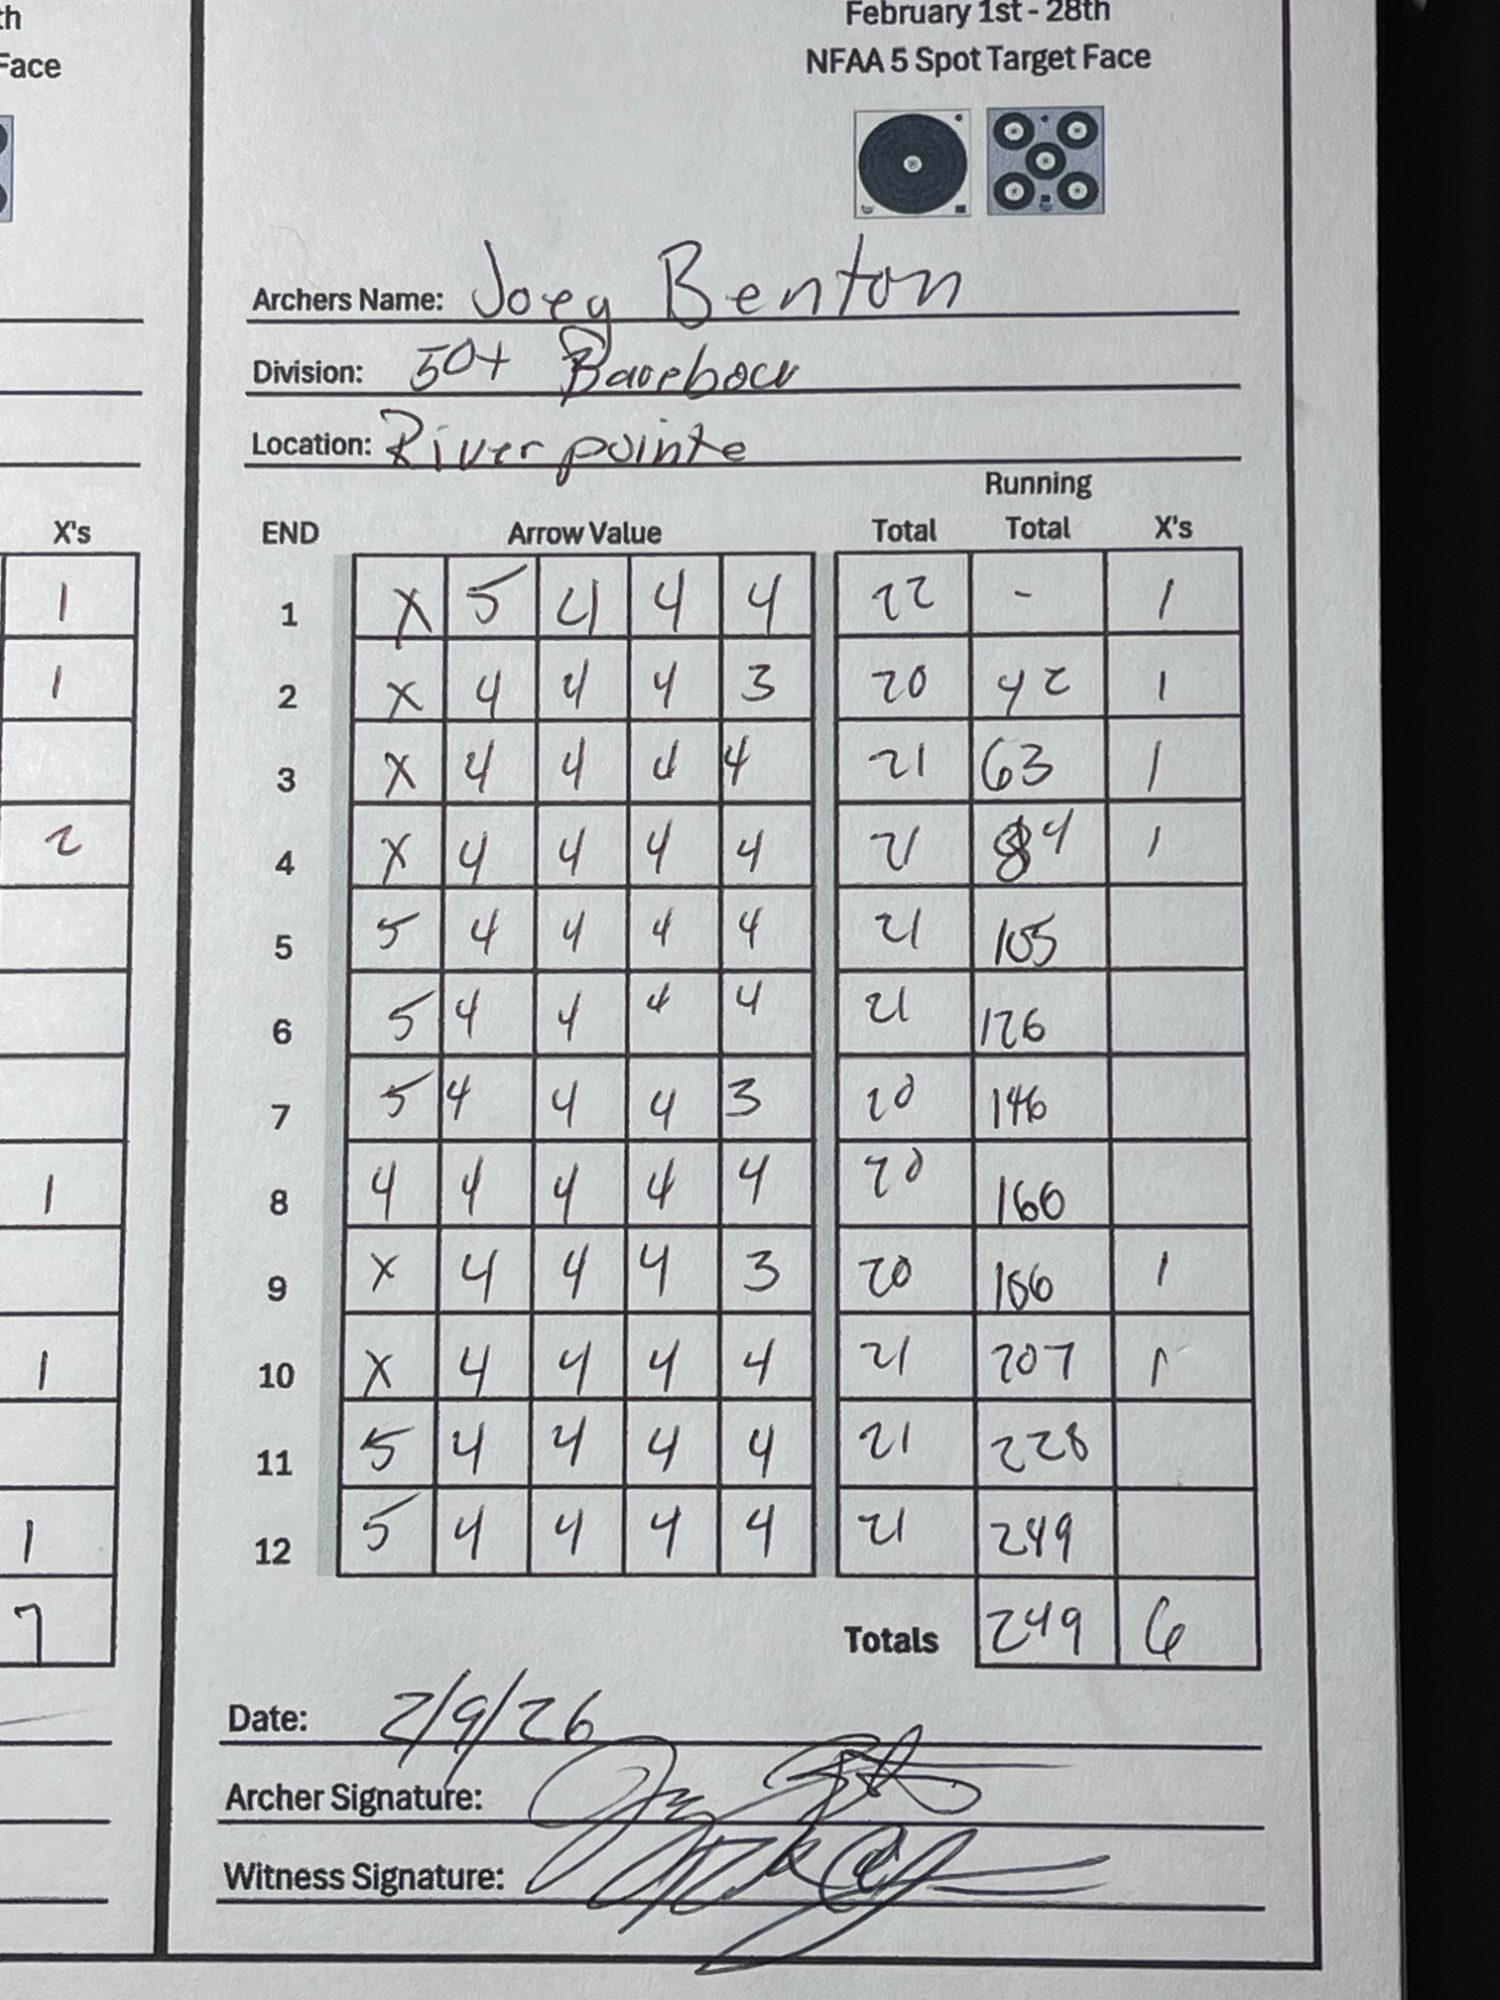 th
Face
X's
1
1
2
1
1
1
7
February 1st - 28th
NFAA 5 Spot Target Face
Archers Name: Joey Benton
Division: 50+ Barebow
Location: River pointe
Running
END Arrow Value Total Total X's
1 X 5 4 4 4 22 - 1
2 X 4 4 4 3 20 42 1
3 X 4 4 4 4 21 63 1
4 X 4 4 4 4 21 84 1
5 5 4 4 4 4 21 105
6 5 4 4 4 4 21 126
7 5 4 4 4 3 20 146
8 4 4 4 4 4 20 166
9 X 4 4 4 3 20 186 1
10 X 4 4 4 4 21 207 1
11 5 4 4 4 4 21 228
12 5 4 4 4 4 21 249
Totals 249 6
Date: 2/9/26
Archer Signature:
Witness Signature: